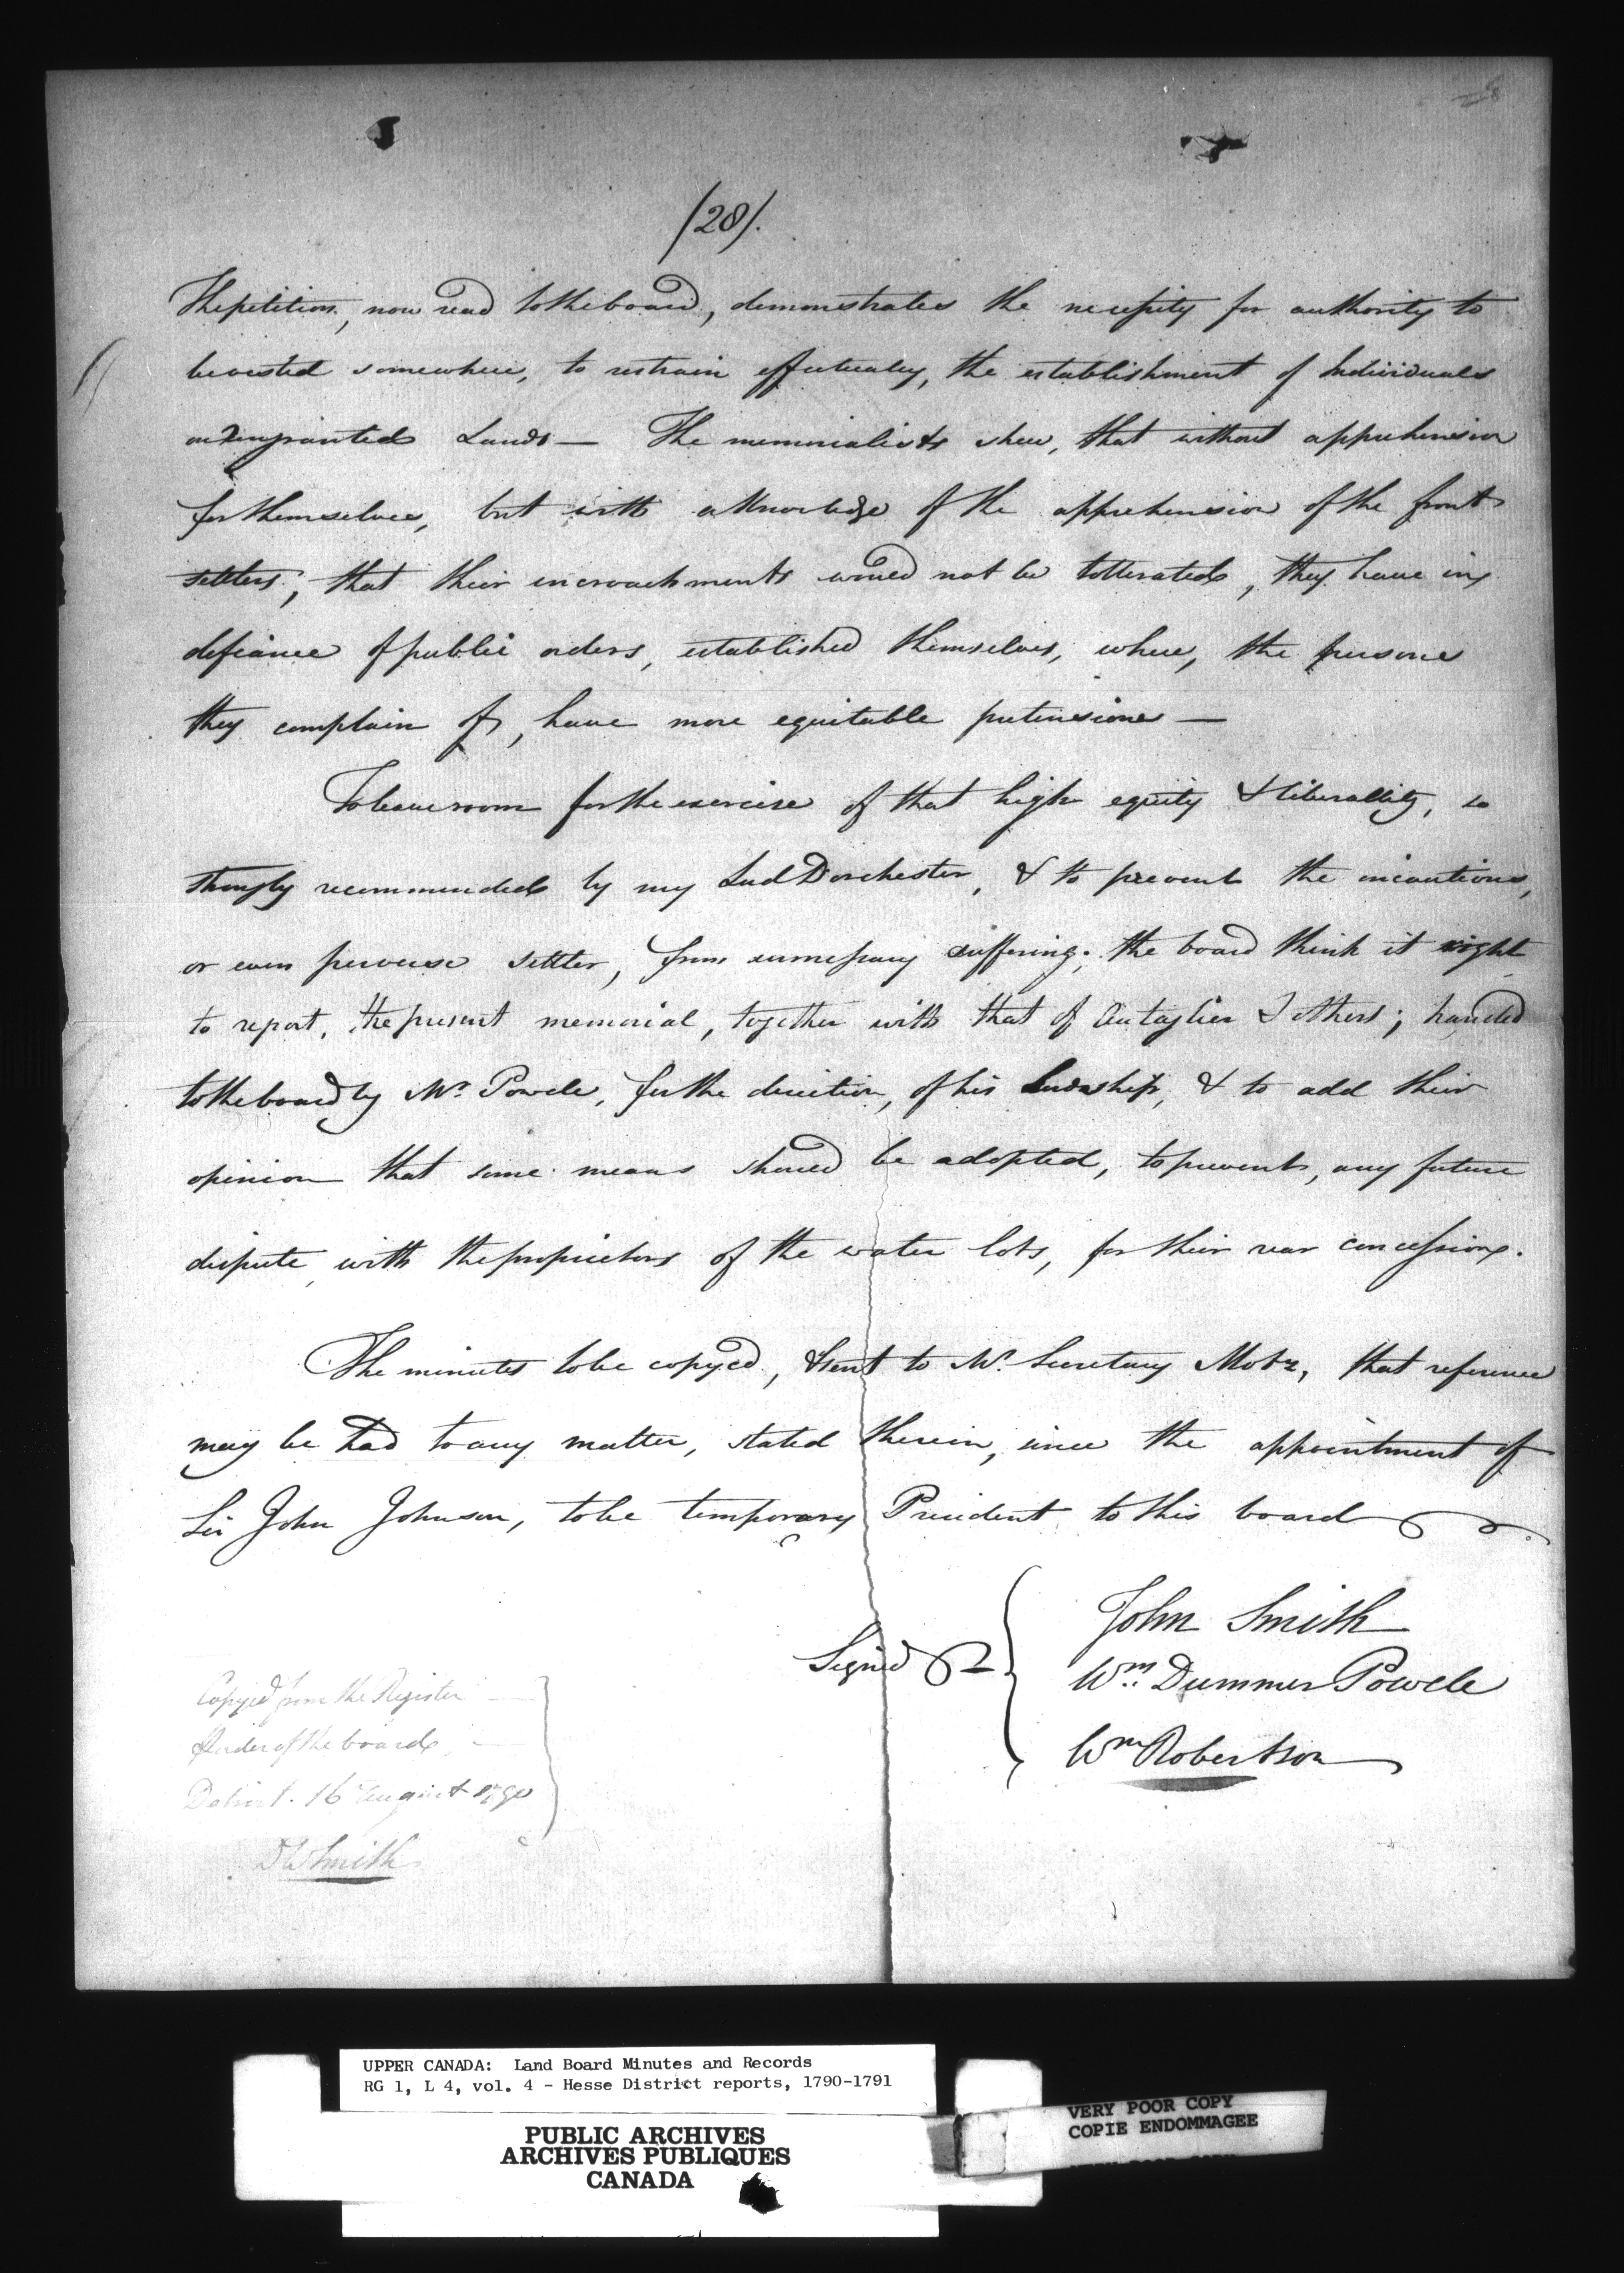 (28).
The petition, now read to the board, demonstrates the necessity for authority to
be vested somewhere, to restrain effectualy, the establishment of Individuals
on ungranted Lands — The memorialists shew, that without apprehension
for themselves, but with a knowledge of the apprehension of the front
settlers; that their incroachments would not be tollerated, they have in
defiance of public orders, established themselves, where, the persons
they complain of, have more equitable pretensions —
To leave room for the exercise of that high equity & liberallity, so
strongly recommended by my Lord Dorchester, & to prevent the incautious,
or even perverse settler, from unnecessary suffering; the board think it right
to report, the present memorial, together with that of & others; handed
to the board by Mr. Powell, for the direction, of his Lordship, & to add their
opinion that some means should be adopted, to prevent, any future
dispute, with the proprietors of the water lots, for their rear concessions.
The minutes to be copyed, & sent to Mr. Secretary Motz, that reference
may be had to any matter, stated therein, since the appointment of
Sir John Johnson, to be temporary President to this board
Signed
John Smith
Wm. Dummer Powell
Wm Robertson
Copyed from the Register
& order of the board,
Detroit. 16 August 1790
DW Smith
UPPER CANADA: Land Board Minutes and Records
RG 1, L 4, vol. 4 - Hesse District reports, 1790-1791
PUBLIC ARCHIVES
ARCHIVES PUBLIQUES
CANADA
VERY POOR COPY
COPIE ENDOMMAGEE